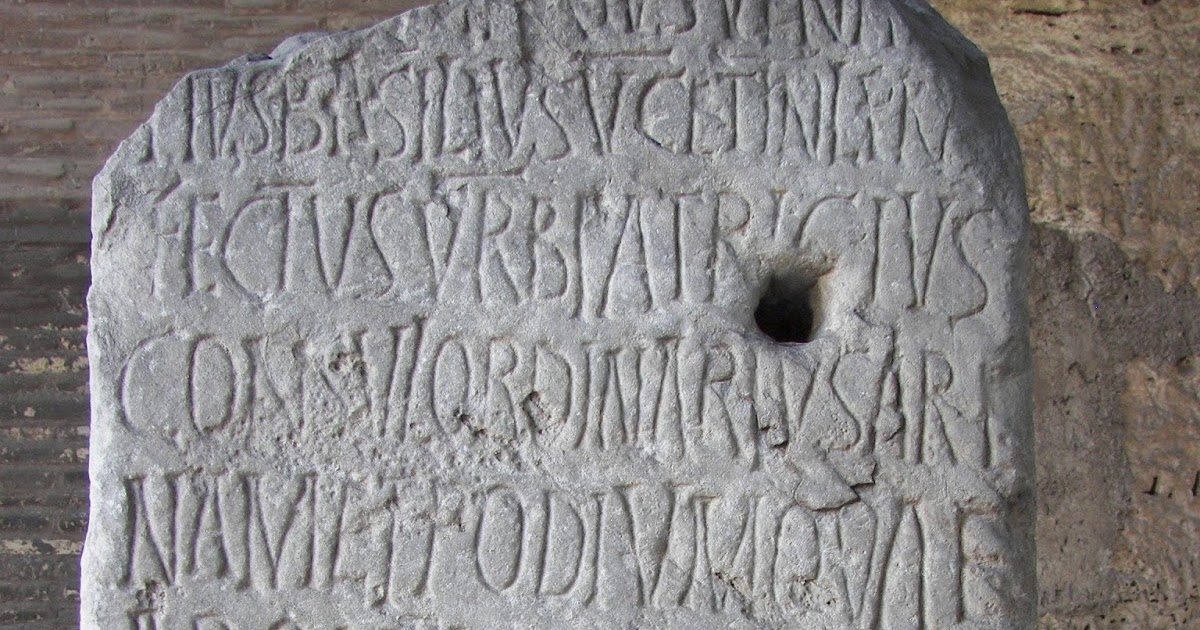 RIVS VENAN
TIVS BASILIVS VC ET INL PR
FECTVS VRB PATRICIVS
CONSVL ORDINARIVS ARE
NAM ET PODIVM QVAE